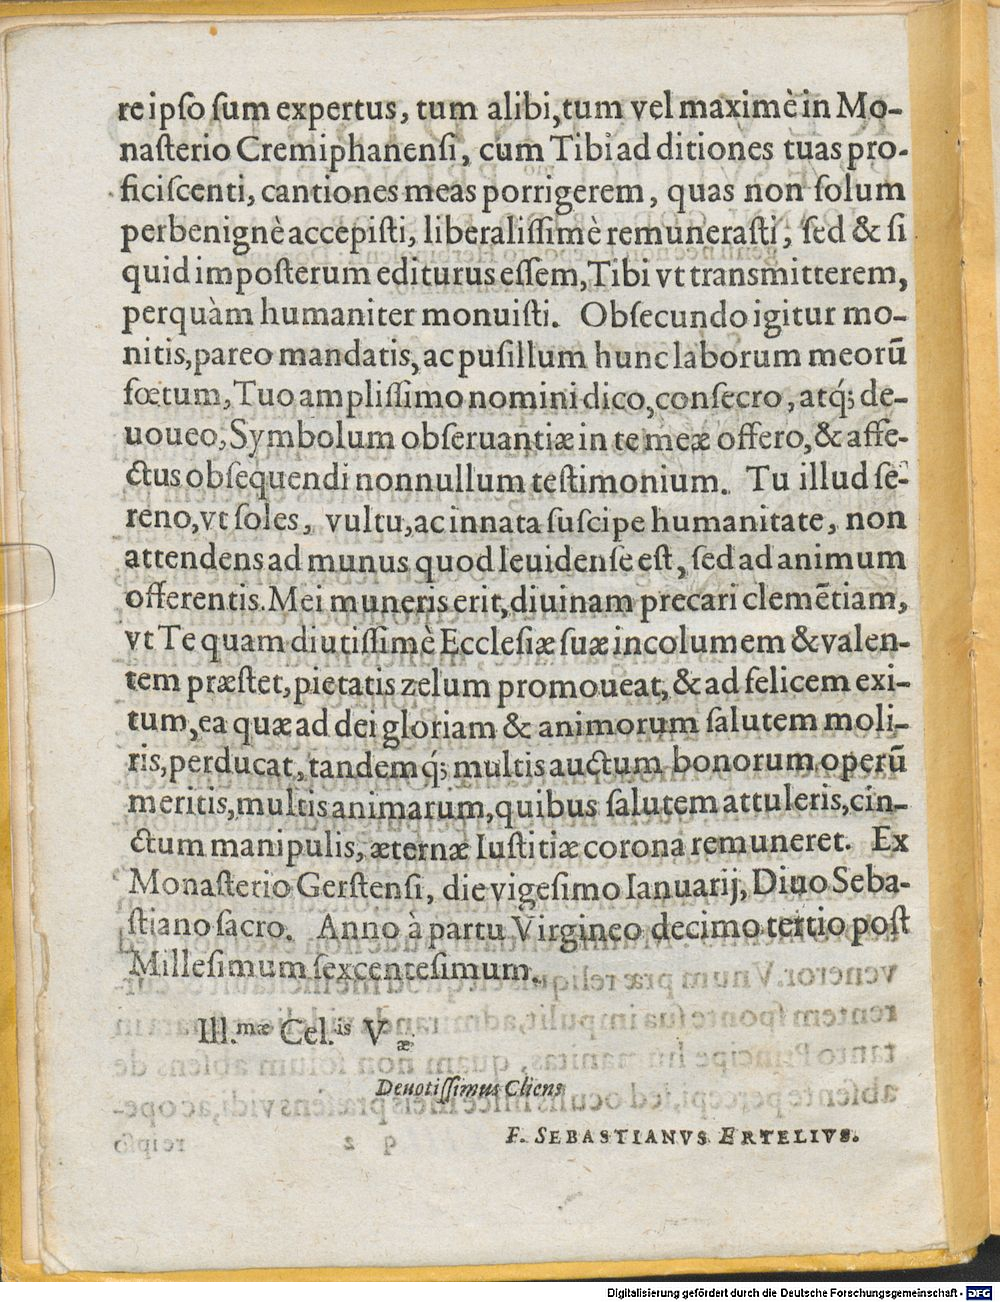 re ipſo ſum expertus, tum alibi, tum vel maximè in Mo-
naſterio Cremiphanenſi, cum Tibi ad ditiones tuas pro-
ficiſcenti, cantiones meas porrigerem, quas non ſolum
perbenignè accepiſti, liberaliſſimè remuneraſti, ſed & ſi
quid impoſterum editurus eſſem, Tibi vt transmitterem,
perquàm humaniter monuiſti. Obſecundo igitur mo-
nitis, pareo mandatis, ac puſillum hunc laborum meorū
fœtum, Tuo ampliſſimo nomini dico, conſecro, atq́; de-
uoueo, Symbolum obſeruantiæ in te meæ offero, & affe-
ctus obſequendi nonnullum teſtimonium. Tu illud ſe-
reno, vt ſoles, vultu, ac innata ſuſcipe humanitate, non
attendens ad munus quod leuidenſe eſt, ſed ad animum
offerentis. Mei muneris erit, diuinam precari clemētiam,
vt Te quam diutiſſimè Eccleſiæ ſuæ incolumem & valen-
tem præſtet, pietatis zelum promoueat, & ad felicem exi-
tum, ea quæ ad dei gloriam & animorum ſalutem moli-
ris, perducat, tandemq́; multis auctum bonorum operū
meritis, multis animarum, quibus ſalutem attuleris, cin-
ctum manipulis, æternæ Iuſtitiæ corona remuneret. Ex
Monaſterio Gerſtenſi, die vigeſimo Ianuarij, Diuo Seba-
ſtiano ſacro. Anno à partu Virgineo decimo tertio poſt
Milleſimum ſexcenteſimum.
Ill.mæ Cel.is V æ.
Deuotiſſimus Cliens
F. SEBASTIANVS ERTELIVS.
Digitalisierung gefördert durch die Deutsche Forschungsgemeinschaft - DFG